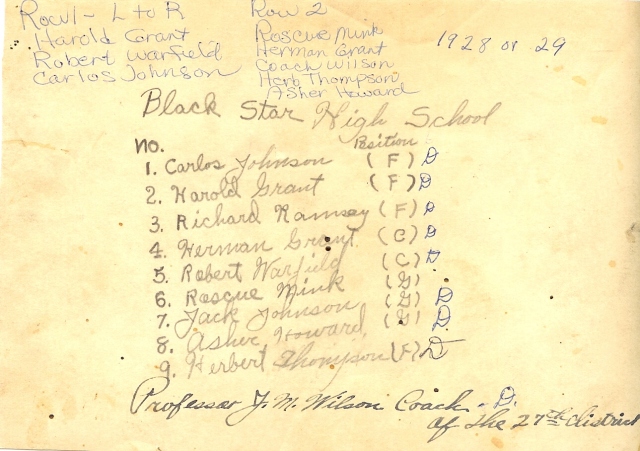 Row 1 - L to R
Harold Grant
Robert Warfield
Carlos Johnson
Row 2
Roscue Mink
Herman Grant
Coach Wilson
Herb Thompson
Asher Howard
1928 or 29
Black Star High School
No. Position
1. Carlos Johnson (F) D
2. Harold Grant (F) D
3. Richard Ramsey (F) D
4. Herman Grant (C) D
5. Robert Warfield (C) D
6. Roscue Mink (G)
7. Jack Johnson (G) D
8. Asher Howard (G) D
9. Herbert Thompson (F) D
Professor J. M. Wilson Coach - D.
of the 27th district